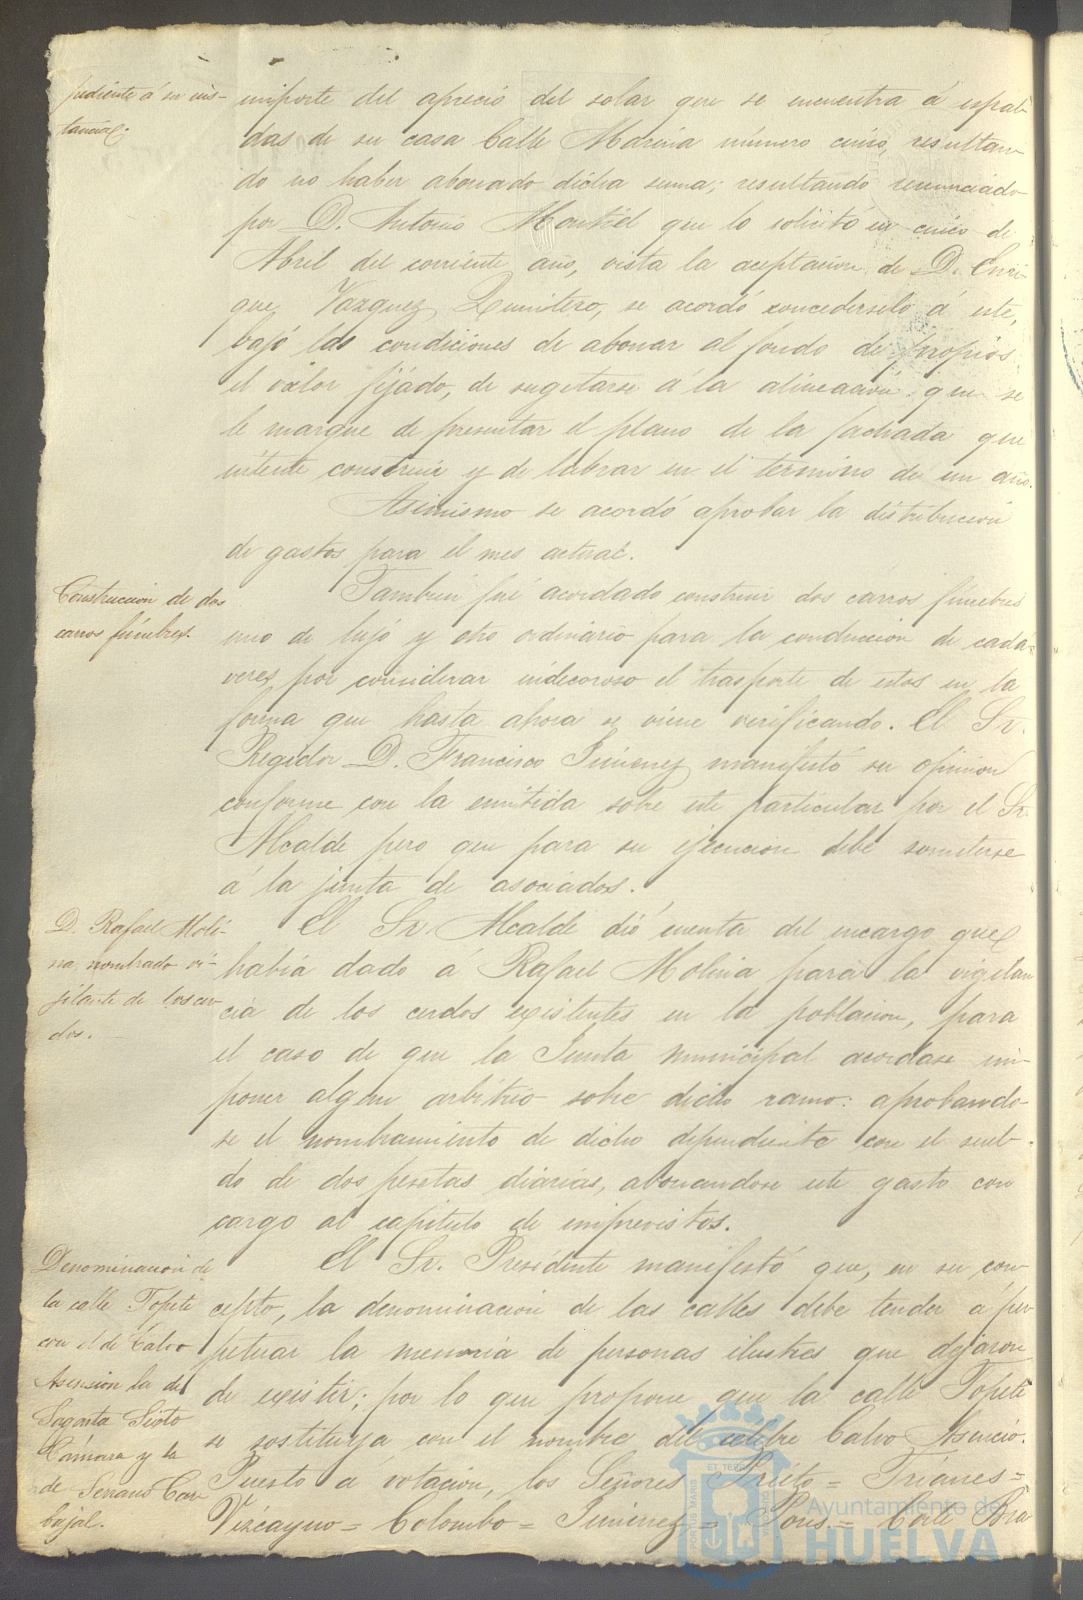 pediente á su ins-
tancia.
importe del aprecio del solar que se encuentra á espal-
das de su casa Calle Marina número cinco, resultan-
do no haber abonado dicha suma; resultando renunciado
por D. Antonio Montiel que lo solicitó en cinco de
Abril del corriente año, vista la aceptacion de D. Enri-
que Vazquez Quintero, se acordó concederselo á este,
bajo las condiciones de abonar al fondo de propios
el valor fijado, de sugetarse á la alineacion que se
le marque de presentar el plano de la fachada que
intente construir y de labrar en el termino de un año.
Asimismo se acordó aprobar la distribucion
de gastos para el mes actual.
Construccion de dos
carros fúnebres.
Tambien fué acordado construir dos carros fúnebres
uno de lujo y otro ordinario para la conduccion de cada-
veres por considerar indecoroso el trasporte de estos en la
forma que hasta ahora se viene verificando. El Sr.
Regidor D. Francisco Jimenez manifestó su opinion
conforme con la emitida sobre este particular por el Sr.
Alcalde pero que para su ejecucion debe someterse
á la junta de asociados.
D. Rafael Moli-
na, nombrado vi-
jilante de los cer-
dos.
El Sr. Alcalde dió cuenta del encargo que
habia dado á Rafael Molina para la vigilan
cia de los cerdos existentes en la poblacion, para
el caso de que la Junta municipal acordase im-
poner algun arbitrio sobre dicho ramo: aprobando-
se el nombramiento de dicho dependiente con el suel-
do de dos pesetas diarias, abonandose este gasto con
cargo al capitulo de imprevistos.
Denominacion de
la calle Topete
con el de Calvo
Asension la de
Sagasta Sixto
Cámara y la
de Serrano Car
bajal.
El Sr. Presidente manifestó que, en su con-
cepto, la denominacion de las calles debe tender á per-
petuar la memoria de personas ilustres que dejaron
de existir; por lo que propone que la calle Topete
se sostituya con el nombre del célebre Calvo Asencio.
Puesto á votacion, los Señores Prieto = Trianes =
Vizcayno = Colombo = Jimenez = Pons = Corte Bra
Ayuntamiento de
HUELVA